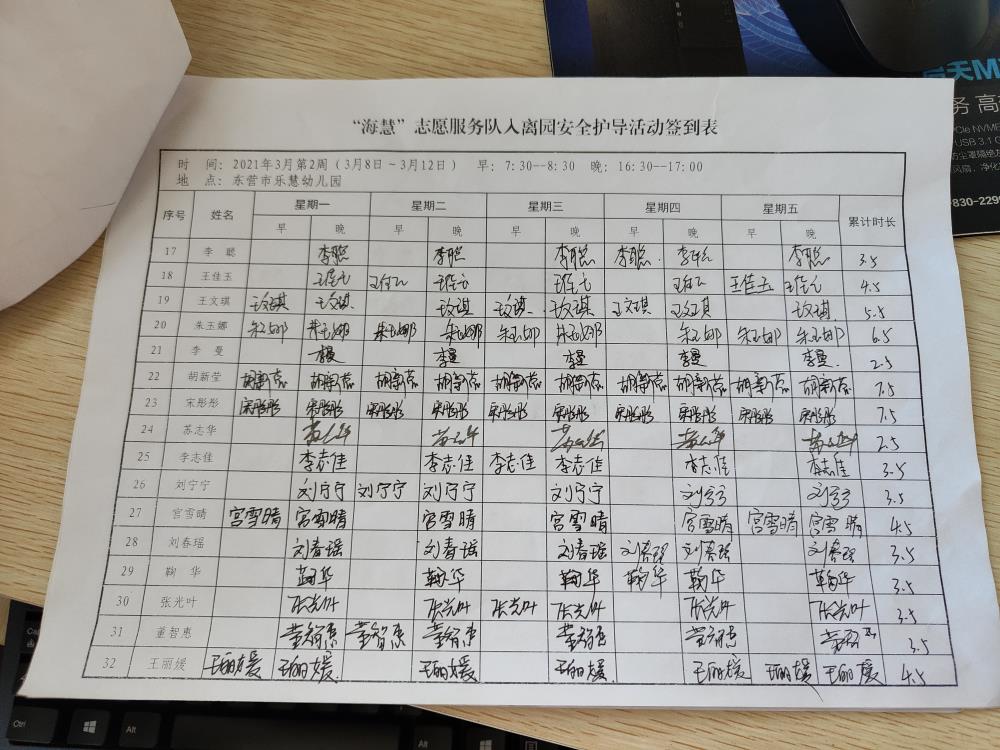 “海慧”志愿服务队入离园安全护导活动签到表
时 间: 2021年3月第2周(3月8日～3月12日) 早: 7:30--8:30 晚: 16:30---17:00
地 点: 东营市乐慧幼儿园
序号 姓名 星期一 星期二 星期三 星期四 星期五 累计时长
早 晚 早 晚 早 晚 早 晚 早 晚
17 李 聪 李聪 李聪 李聪 李聪 李聪 李聪 3.5
18 王佳玉 王佳玉 王佳玉 王佳玉 王佳玉 王佳玉 王佳玉 王佳玉 4.5
19 王文琪 王文琪 王文琪 王文琪 王文琪 王文琪 王文琪 王文琪 王文琪 5.5
20 朱玉娜 朱玉娜 朱玉娜 朱玉娜 朱玉娜 朱玉娜 朱玉娜 朱玉娜 朱玉娜 朱玉娜 6.5
21 李 曼 李曼 李曼 李曼 李曼 李曼 2.5
22 胡新莹 胡新莹 胡新莹 胡新莹 胡新莹 胡新莹 胡新莹 胡新莹 胡新莹 胡新莹 胡新莹 7.5
23 宋彤彤 宋彤彤 宋彤彤 宋彤彤 宋彤彤 宋彤彤 宋彤彤 宋彤彤 宋彤彤 宋彤彤 宋彤彤 7.5
24 苏志华 苏志华 苏志华 苏志华 苏志华 苏志华 2.5
25 李志佳 李志佳 李志佳 李志佳 李志佳 李志佳 李志佳 3.5
26 刘宁宁 刘宁宁 刘宁宁 刘宁宁 刘宁宁 刘宁宁 刘宁宁 3.5
27 宫雪晴 宫雪晴 宫雪晴 宫雪晴 宫雪晴 宫雪晴 宫雪晴 宫雪晴 4.5
28 刘春瑶 刘春瑶 刘春瑶 刘春瑶 刘春瑶 刘春瑶 刘春瑶 3.5
29 鞠 华 鞠华 鞠华 鞠华 鞠华 鞠华 鞠华 3.5
30 张光叶 张光叶 张光叶 张光叶 张光叶 张光叶 张光叶 3.5
31 董智惠 董智惠 董智惠 董智惠 董智惠 董智惠 董智惠 3.5
32 王丽媛 王丽媛 王丽媛 王丽媛 王丽媛 王丽媛 王丽媛 王丽媛 4.5
Ctrl
Alt
Alt